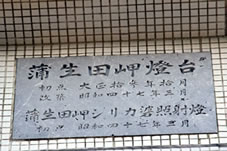 蒲生田岬燈台
初点 大正拾参年拾月
昭和四十 年三月
蒲生田岬シリカ碆照射燈
初点 昭和四十七年三月